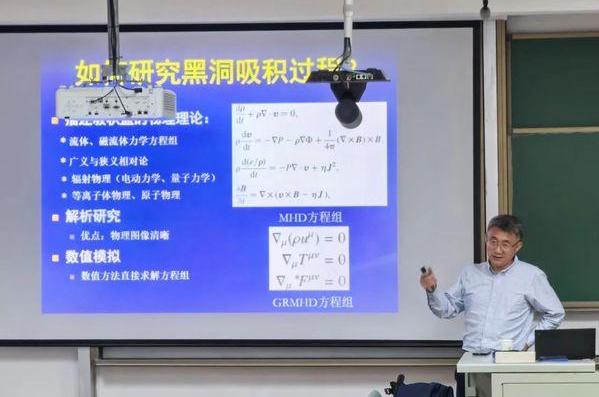 研究黑洞吸积过程?
物理理论:
流体、磁流体力学方程组
广义与狭义相对论
辐射物理（电动力学、量子力学）
等离子体物理、原子物理
解析研究
优点：物理图像清晰
数值模拟
数值方法直接求解方程组
dρ/dt + ρ∇·v = 0,
ρ dv/dt = −∇P − ρ∇Φ + 1/4π (∇×B)×B
ρ d(e/ρ)/dt = −P∇·v + ηJ²,
∂B/∂t = ∇×(v×B − ηJ),
MHD方程组
∇μ(ρuμ) = 0
∇μTμν = 0
∇μ*Fμν = 0
GRMHD方程组